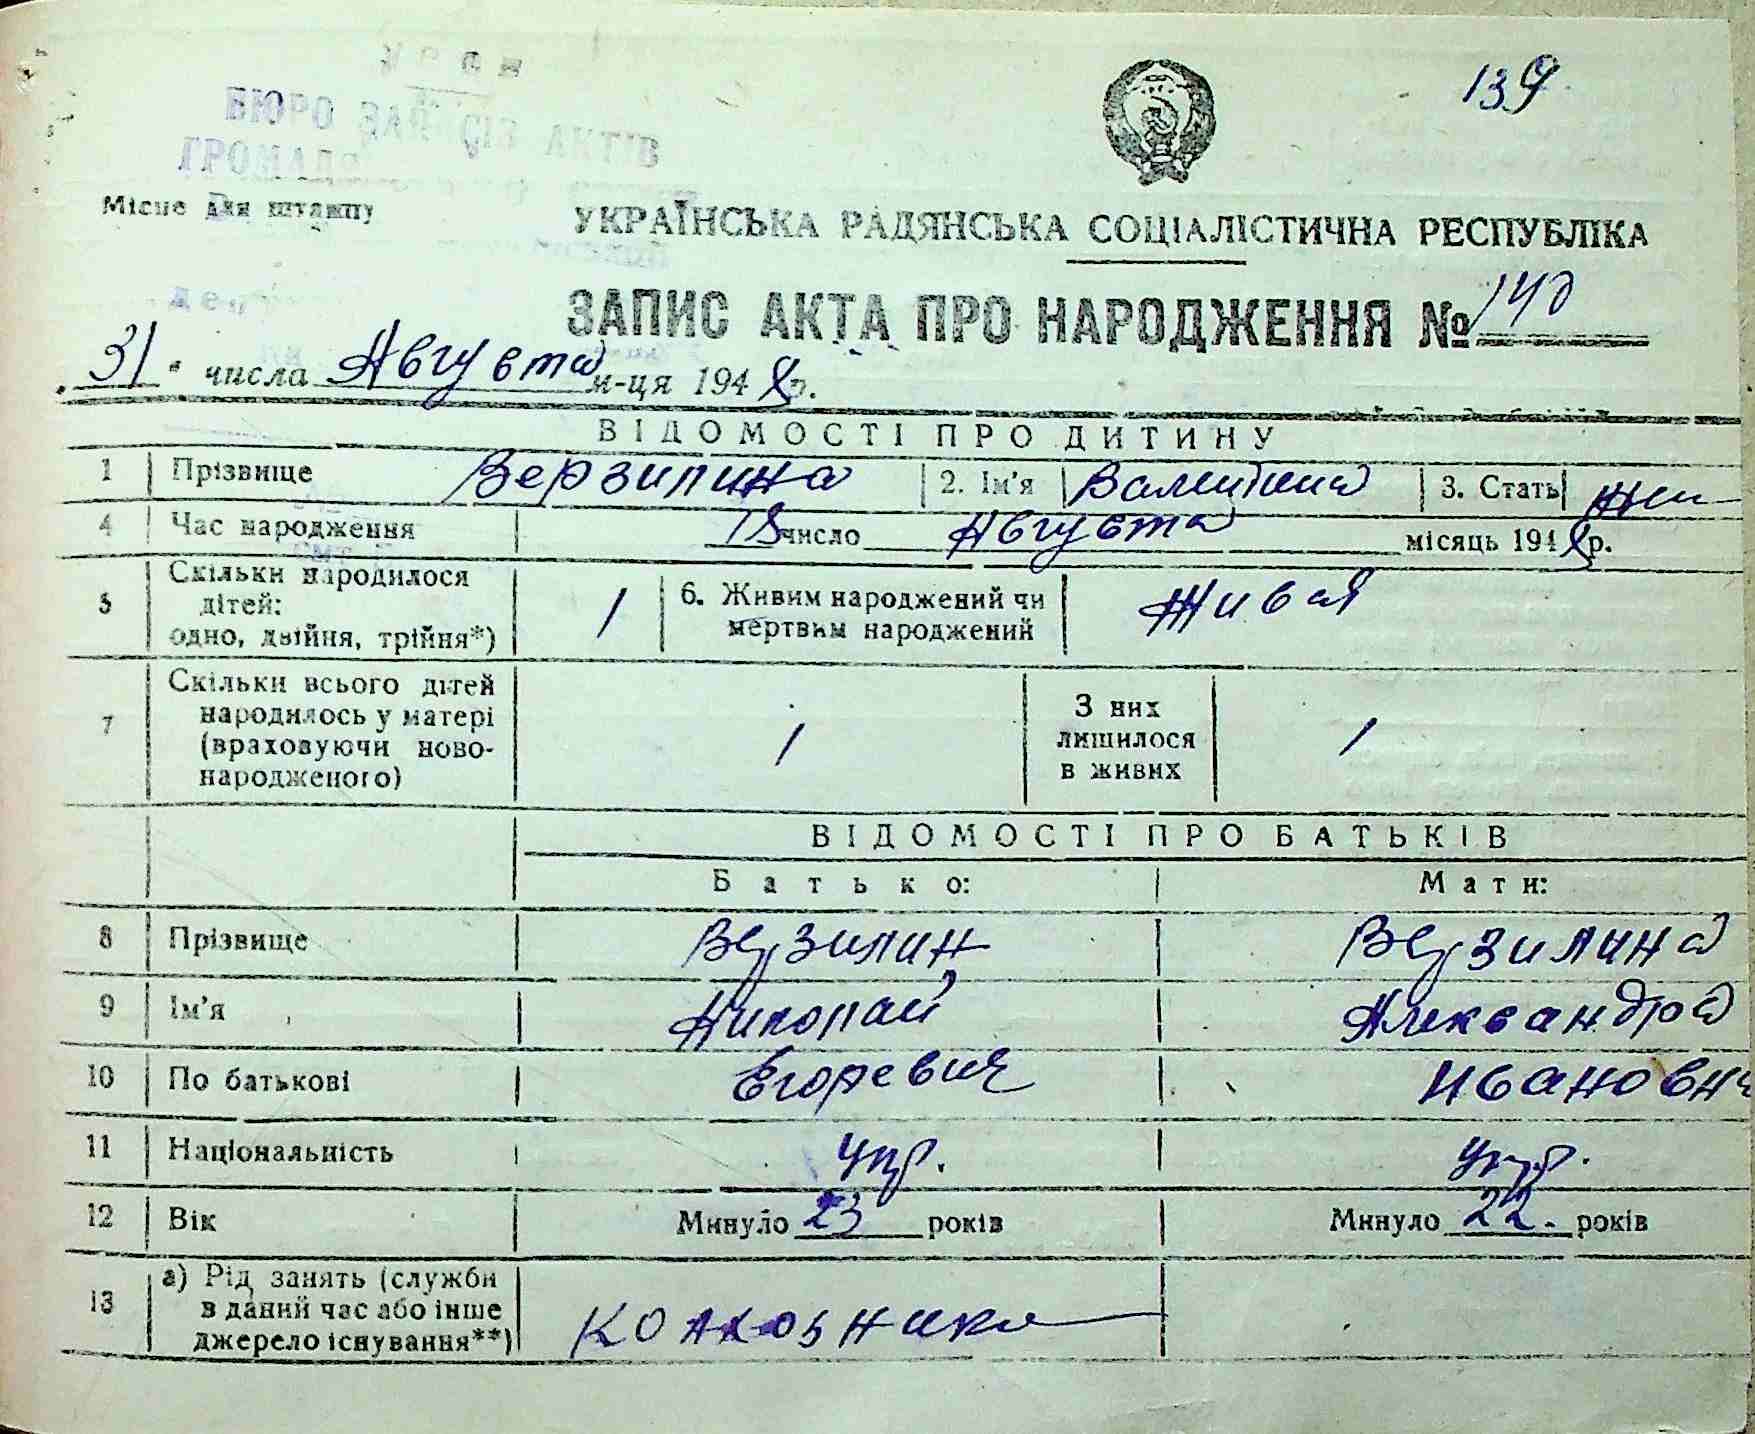 139
БЮРО ЗАПИСІВ АКТІВ
Місце для штампу
УКРАЇНСЬКА РАДЯНСЬКА СОЦІАЛІСТИЧНА РЕСПУБЛІКА
ЗАПИС АКТА ПРО НАРОДЖЕННЯ № 140
"31" числа Августа м-ця 1948 р.
ВІДОМОСТІ ПРО ДИТИНУ
1 Прізвище Верзилина 2. Ім'я Валентина 3. Стать жен
4 Час народження 18 число Августа місяць 1948 р.
5 Скільки народилося дітей: одно, двійня, трійня*) 1 6. Живим народжений чи мертвим народжений Живая
7 Скільки всього дітей народилось у матері (враховуючи ново-народженого) 1 З них лишилося в живих 1
ВІДОМОСТІ ПРО БАТЬКІВ
Батько: Мати:
8 Прізвище Верзилин Верзилина
9 Ім'я Николай Александра
10 По батькові Егоревич Ивановн
11 Національність укр. укр.
12 Вік Минуло 23 років Минуло 22. років
13 а) Рід занять (служби в даний час або інше джерело існування**) колхозники